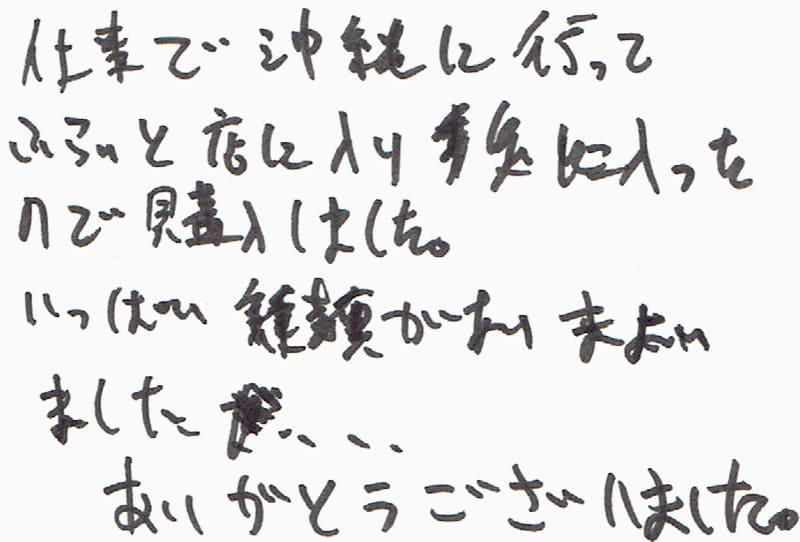 仕事で沖縄に行って
ふらっと店に入り 気に入った
ので購入しました。
いっぱい 種類があり まよい
ました が、、、
ありがとうございました。